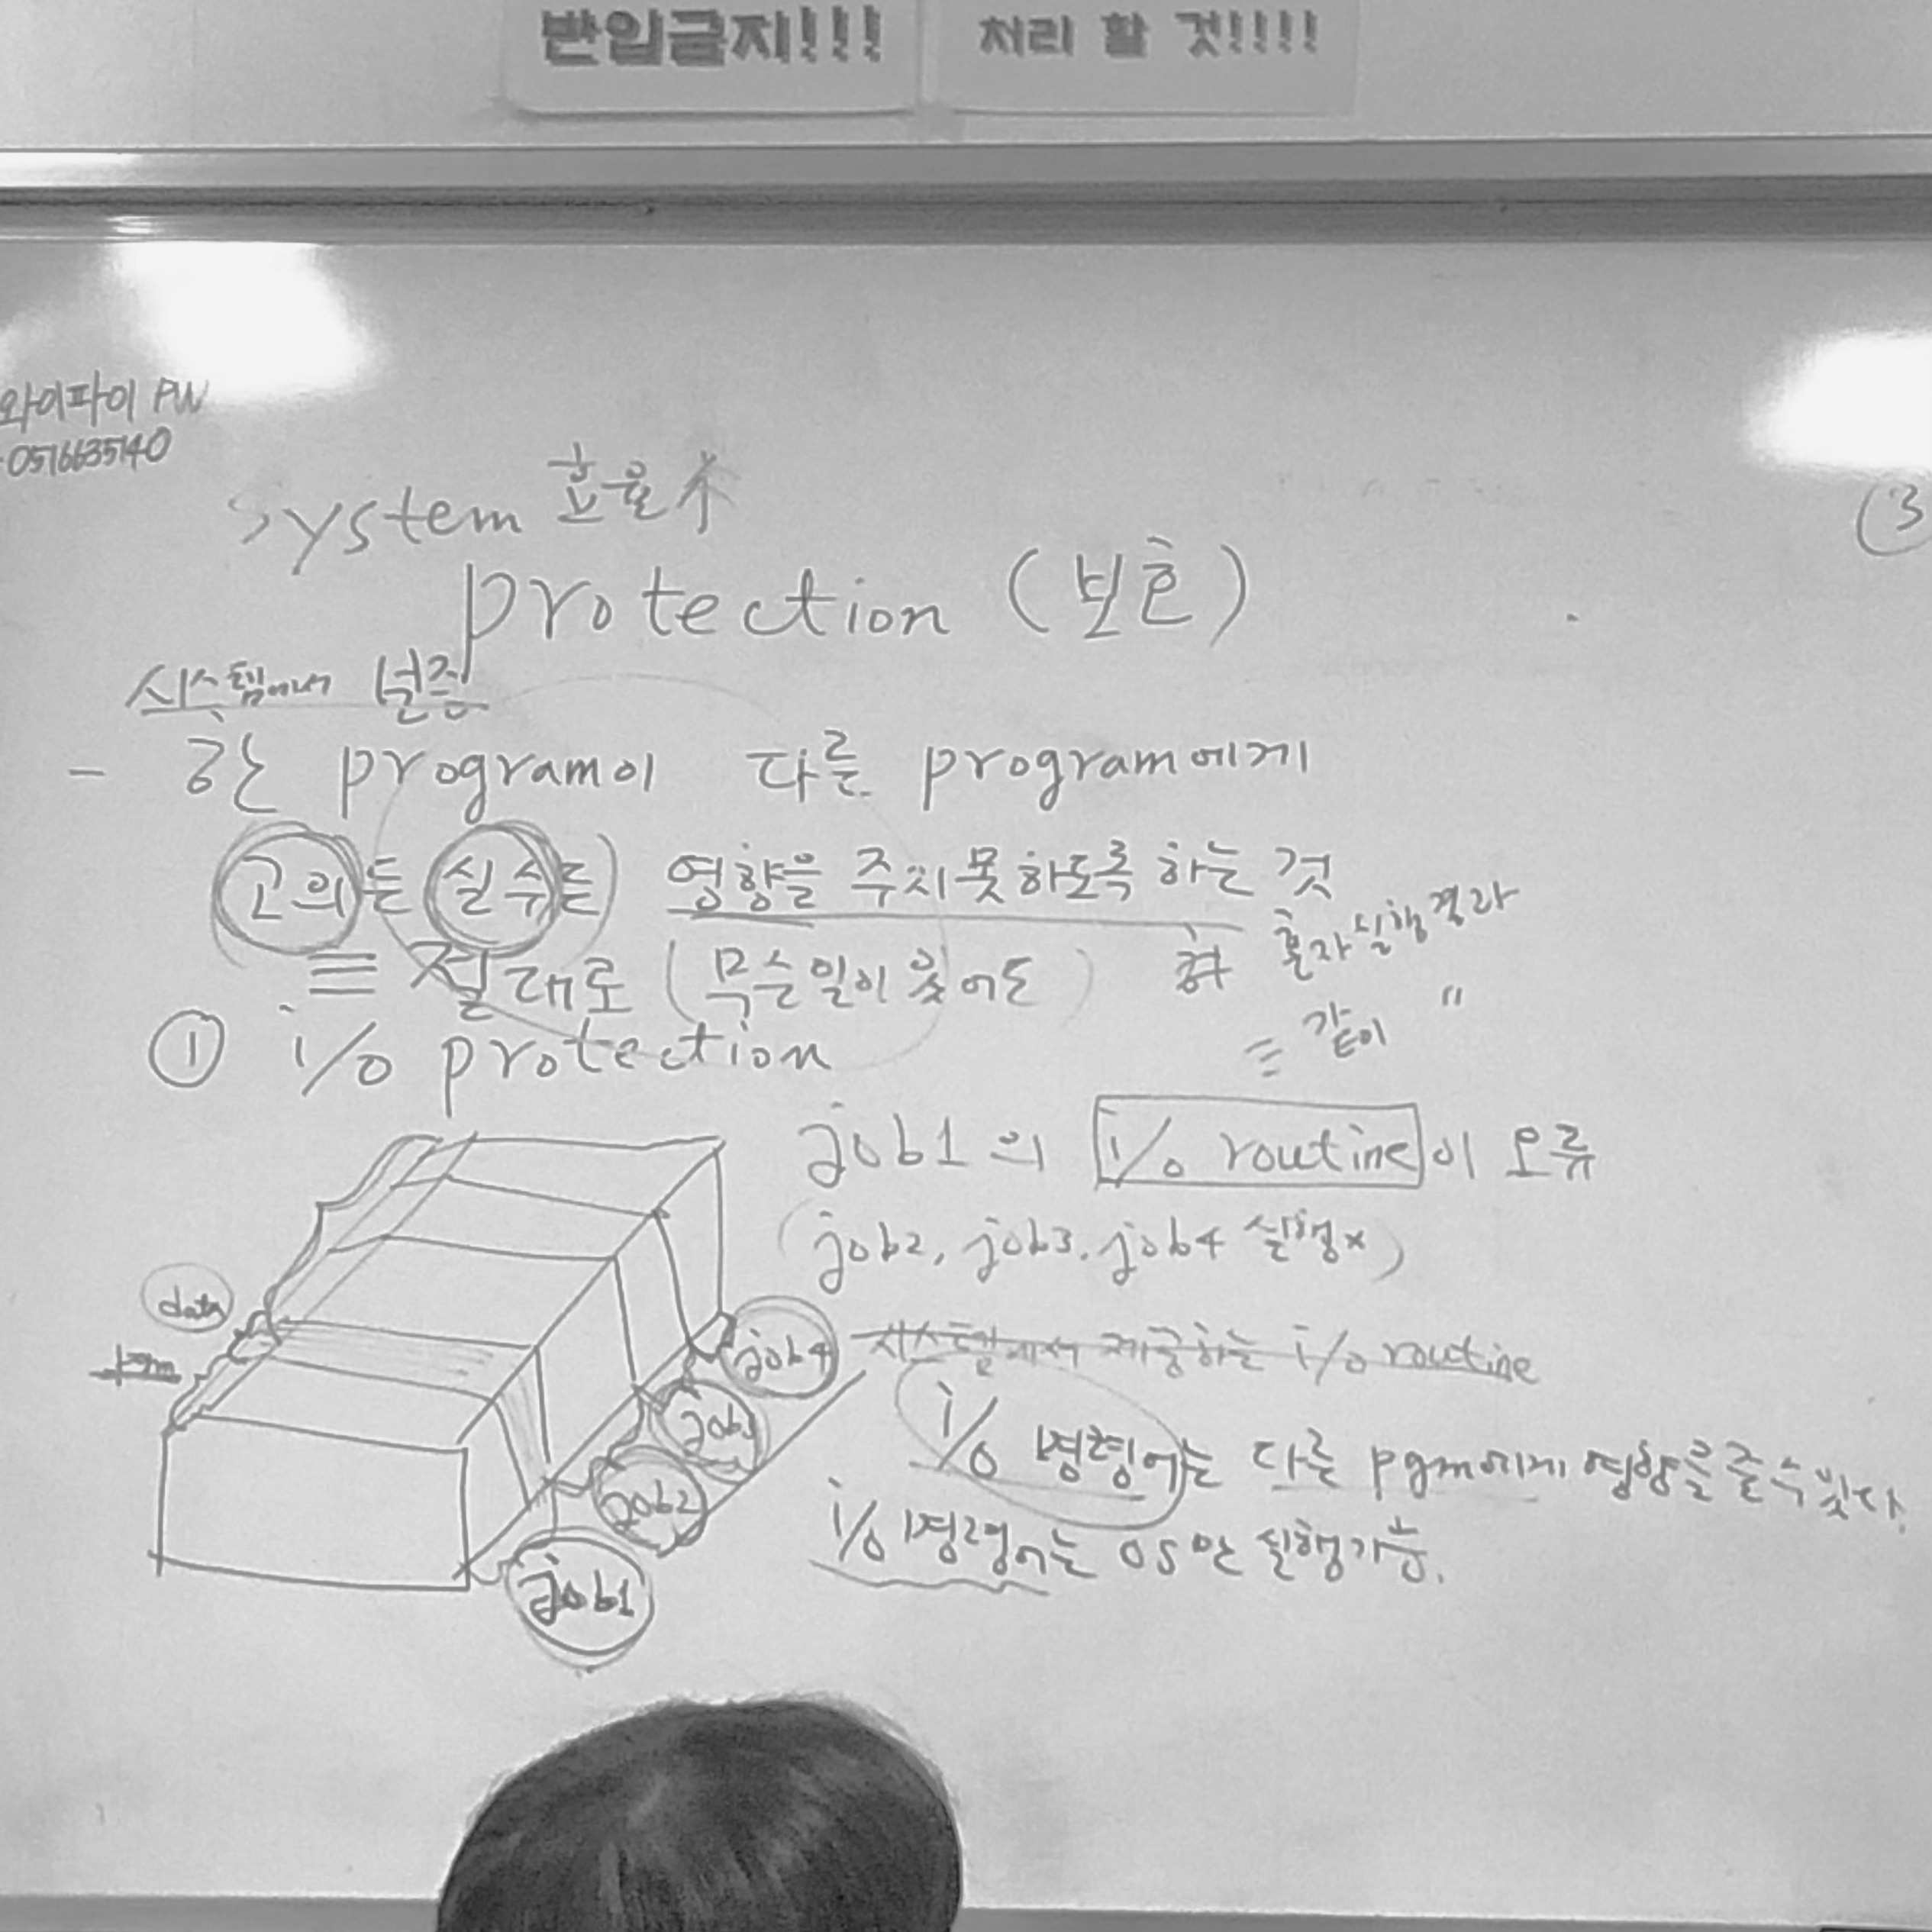 반입금지!!!
처리 할 것!!!!
와이파이 PW
0516635140
system 효율 ↑
protection (보호)
③
시스템에서 보증
- 한 program이 다른 program에게
고의든 실수든) 영향을 주지못하도록 하는 것
≡ 절대로 (무슨일이 있어도)
혼자실행결과
≡ 같이 "
① i/o protection
job1의 i/o routine이 오류
(job2, job3, job4 실행x)
data
job4
job3
job2
job1
시스템에서 제공하는 i/o routine
i/o 명령어는 다른 pgm에게 영향을 줄 수 있다.
i/o 명령어는 OS만 실행가능.